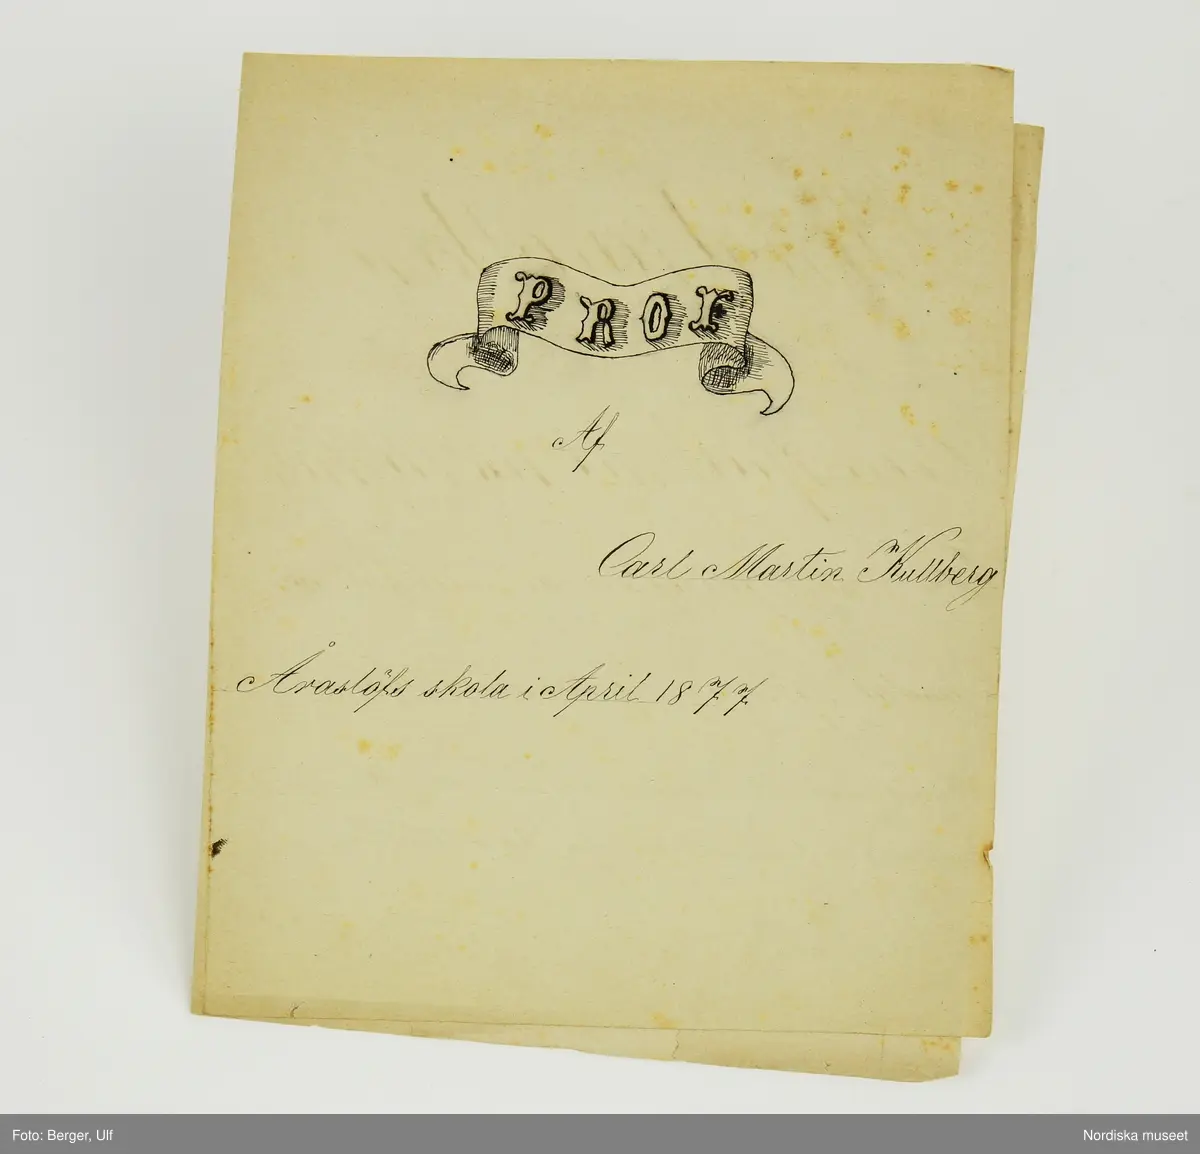 PROF
Af
Carl Martin Kullberg
Åraslöfs skola i April 1877
Foto: Berger, Ulf
Nordiska museet